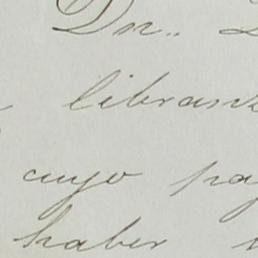 Dn..
libranz
cuyo pag
haber